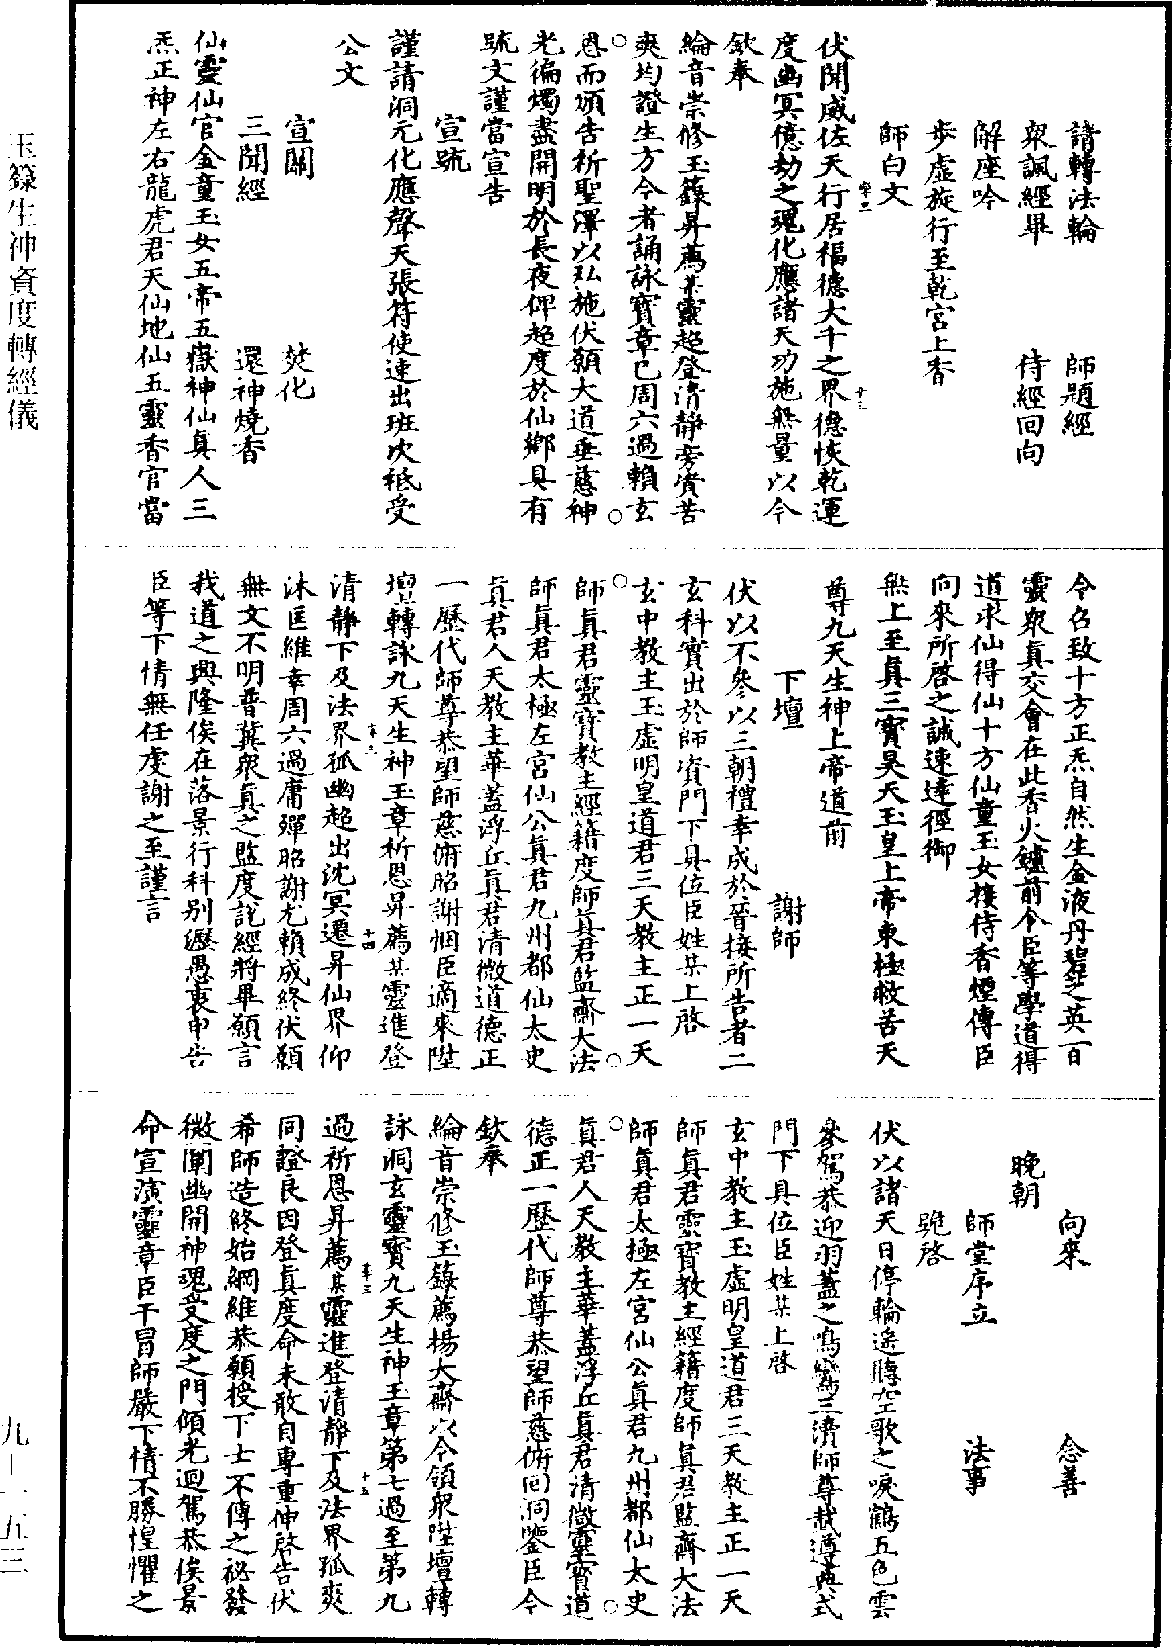 請轉法輪　師題經
衆諷經畢　侍經回向
解座吟
步虛旋行至乾宮上香
師白文
伏聞威佐天行居福德大千之界德恢乾運
度幽冥億劫之魂化應諸天功施無量以今
欽奉
綸音崇修玉籙昇薦某靈超登清靜旁資苦
爽均證生方今者誦詠寶章已周六過賴玄
恩而頒告祈聖澤以弘施伏願大道垂慈神
光徧燭盡開明於長夜俾超度於仙鄉具有
䟽文謹當宣告
宣䟽
謹請洞元化應聲天張符使速出班次祗受
公文
宣關　焚化
三聞經　還神燒香
仙靈仙官金童玉女五帝五嶽神仙真人三
炁正神左右龍虎君天仙地仙五靈香官當
令召致十方正炁自然生金液丹碧芝英百
靈衆真交會在此香火鑪前令臣等學道得
道求仙得仙十方仙童玉女接侍香煙傳臣
向來所啓之誠速達徑御
無上至真三寶昊天玉皇上帝東極救苦天
尊九天生神上帝道前
下壇　謝師
伏以不參以三朝禮幸成於晉接所告者二
玄科實出於師資門下具位臣姓某上啓
玄中教主玉虛明皇道君三天教主正一天
師真君靈寶教主經籍度師真君監齋大法
師真君太極左宮仙公真君九州都仙太史
真君人天教主華蓋浮丘真君清微道德正
一歷代師尊恭望師慈俯昭謝悃臣適來陞
壇轉詠九天生神玉章祈恩昇薦某靈進登
清靜下及法界孤幽超出沈冥還昇仙界仰
沐匡維幸周六過庸殫昭謝尤賴成終伏願
無文不明普冀衆真之監度說經將畢願言
我道之興隆俟在落景行科別瀝愚衷申告
臣等下情無任虔謝之至謹言
向來　念善
晚朝
師堂序立　法事
跪啓
伏以諸天日停輪遙聽空歌之唳鶴五色雲
參駕恭迎羽蓋之鳴鸞三濟師尊載遵典式
門下具位臣姓某上啓
玄中教主玉虛明皇道君三天教主正一天
師真君靈寶教主經籍度師真君監齋大法
師真君太極左宮仙公真君九州都仙太史
真君人天教主華蓋浮丘真君清微靈寶道
德正一歷代師尊恭望師慈俯回洞鑒臣今
欽奉
綸音崇修玉籙薦揚大齋以今領衆陞壇轉
詠洞玄靈寶九天生神玉章第七過至第九
過祈恩昇薦某靈進登清靜下及法界孤爽
同證良因登真度命未敢自專重伸啓告伏
希師造終始綱維恭願授下士不傳之祕發
微闡幽開神魂受度之門傾光迴駕恭俟景
命宣演靈章臣干冒師嚴下情不勝惶懼之
玉籙生神資度轉經儀
九—一五三